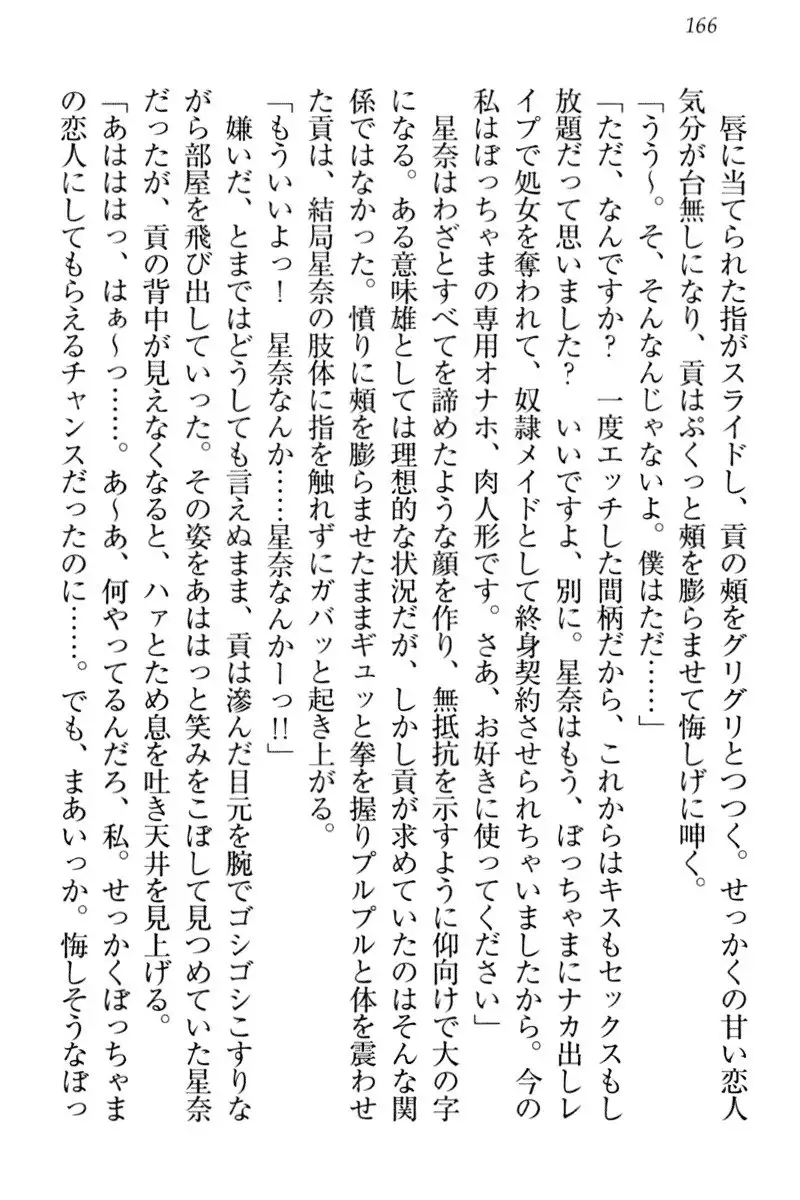 166
唇に当てられた指がスライドし、貢の頬をグリグリとつつく。せっかくの甘い恋人
気分が台無しになり、貢はぷくっと頬を膨らませて悔しげに呻く。
「うう〜。そ、そんなんじゃないよ。僕はただ……」
「ただ、なんですか？　一度エッチした間柄だから、これからはキスもセックスもし
放題だって思いました？　いいですよ、別に。星奈はもう、ぼっちゃまにナカ出しレ
イプで処女を奪われて、奴隷メイドとして終身契約させられちゃいましたから。今の
私はぼっちゃまの専用オナホ、肉人形です。さあ、お好きに使ってください」
星奈はわざとすべてを諦めたような顔を作り、無抵抗を示すように仰向けで大の字
になる。ある意味雄としては理想的な状況だが、しかし貢が求めていたのはそんな関
係ではなかった。憤りに頬を膨らませたままギュッと拳を握りプルプルと体を震わせ
た貢は、結局星奈の肢体に指を触れずにガバッと起き上がる。
「もういいよっ！　星奈なんか……星奈なんかーっ!!」
嫌いだ、とまではどうしても言えぬまま、貢は滲んだ目元を腕でゴシゴシこすりな
がら部屋を飛び出していった。その姿をあははっと笑みをこぼして見つめていた星奈
だったが、貢の背中が見えなくなると、ハァとため息を吐き天井を見上げる。
「あはははっ、はぁ〜っ……。あ〜あ、何やってるんだろ、私。せっかくぼっちゃま
の恋人にしてもらえるチャンスだったのに……。でも、まあいっか。悔しそうなぼっ